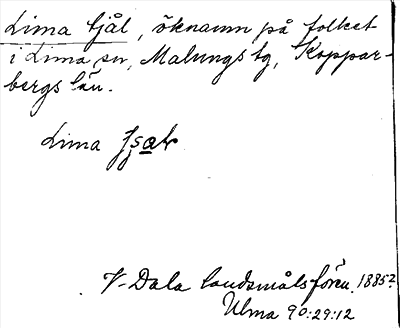 Lima tjål, öknamn på folket
i Lima sn, Malungs tg, Koppar-
bergs län.
Lima
V-Dala landsmålsfören. 1885?
Ulma 90:29:12